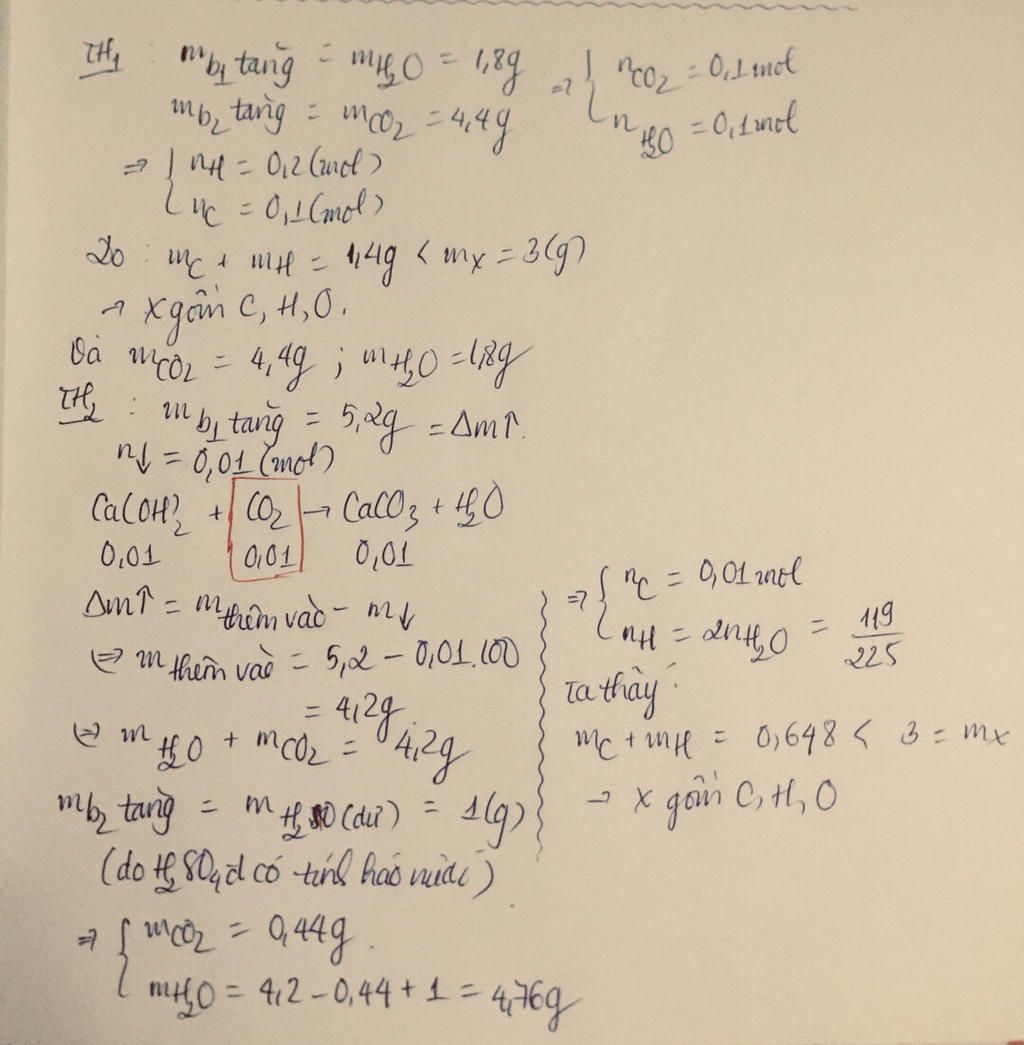 TH₁ : m b₁ tăng = mH₂O = 1,8g ⇒ { nCO₂ = 0,1 mol
m b₂ tăng = mCO₂ = 4,4g   nH₂O = 0,1 mol
⇒ { nH = 0,2 (mol)
nC = 0,1 (mol)
Do : mC + mH = 1,4g < mX = 3(g)
→ X gồm C, H, O.
Và mCO₂ = 4,4g ; mH₂O = 1,8g
TH₂ : m b₁ tăng = 5,2g = Δm↑.
n↓ = 0,01 (mol)
Ca(OH)₂ + CO₂ → CaCO₃ + H₂O
0,01 0,01 0,01
Δm↑ = m thêm vào - m↓
⇔ m thêm vào = 5,2 - 0,01.100
= 4,2g
⇔ mH₂O + mCO₂ = 4,2g
m b₂ tăng = mH₂O (dư) = 1(g)
(do H₂SO₄đ có tính háo nước)
⇒ { mCO₂ = 0,44g.
mH₂O = 4,2 - 0,44 + 1 = 4,76g
⇒ { nC = 0,01 mol
nH = 2nH₂O = 119/225
Ta thấy :
mC + mH = 0,648 < 3 = mX
→ X gồm C, H, O